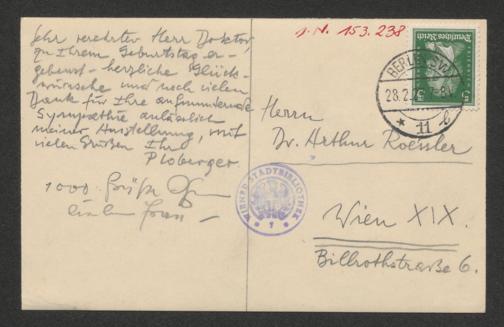 Sehr verehrter Herr Doktor,
zu Ihrem Geburtstag er-
gebenst-herzliche Glück-
wünsche und noch vielen
Dank für Ihre aufmunternde
Sympathie anlässlich
meiner Ausstellung, mit
vielen Grüßen Ihr
Ploberger
1000 Grüße
J.N. 153.238
Deutsches Reich
5 5
BERLIN SW
28.2.
* 11
Herrn
Dr. Arthur Roessler
WIENER STADTBIBLIOTHEK
Wien XIX.
Billrothstraße 6.